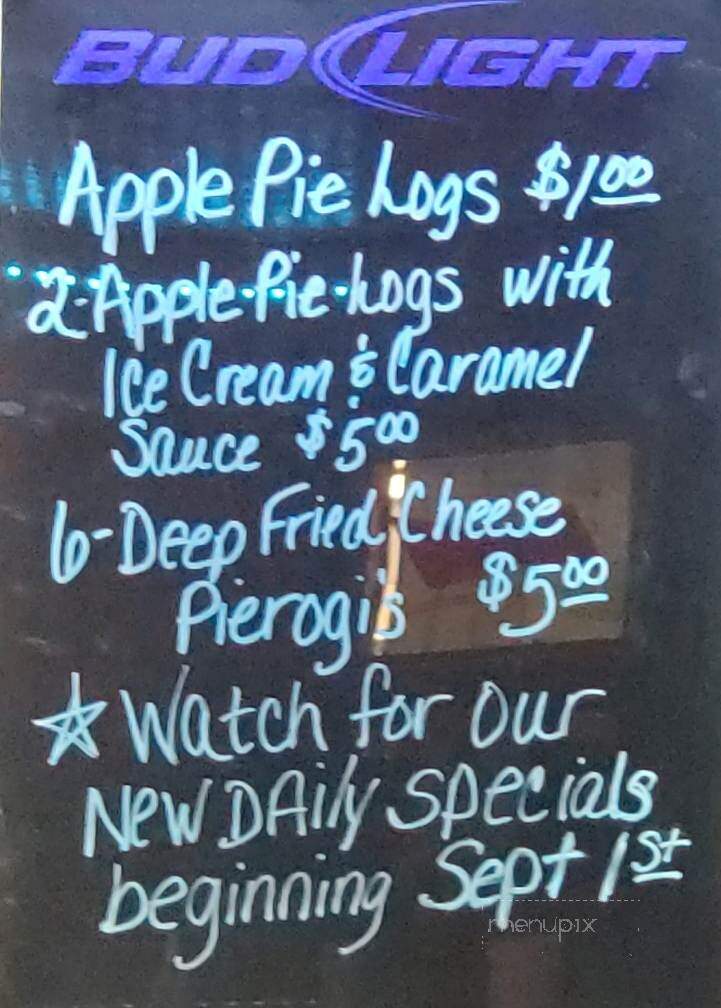 BUD LIGHT
Apple Pie Logs $1.00
2-Apple Pie Logs with
Ice Cream & Caramel
Sauce $5.00
6-Deep Fried Cheese
Pierogi's $5.00
☆ Watch for our
New DAily specials
beginning Sept 1st
menupix